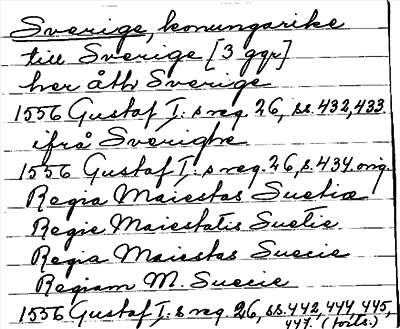 Sverige, konungarike
till Sverige [3 ggr]
her åth Sverige
1556 Gustaf I. s reg. 26, ss. 432, 433
ifrå Sverighe
1556 Gustaf I. s reg. 26, s. 434 orig.
Regia Maiestas Suetiæ
Regie Maiestatis Suetie
Regia Maiestas Suecie
Regiam M. Suecie
1556 Gustaf I. s reg. 26, ss. 442, 444, 445,
447. (forts.)